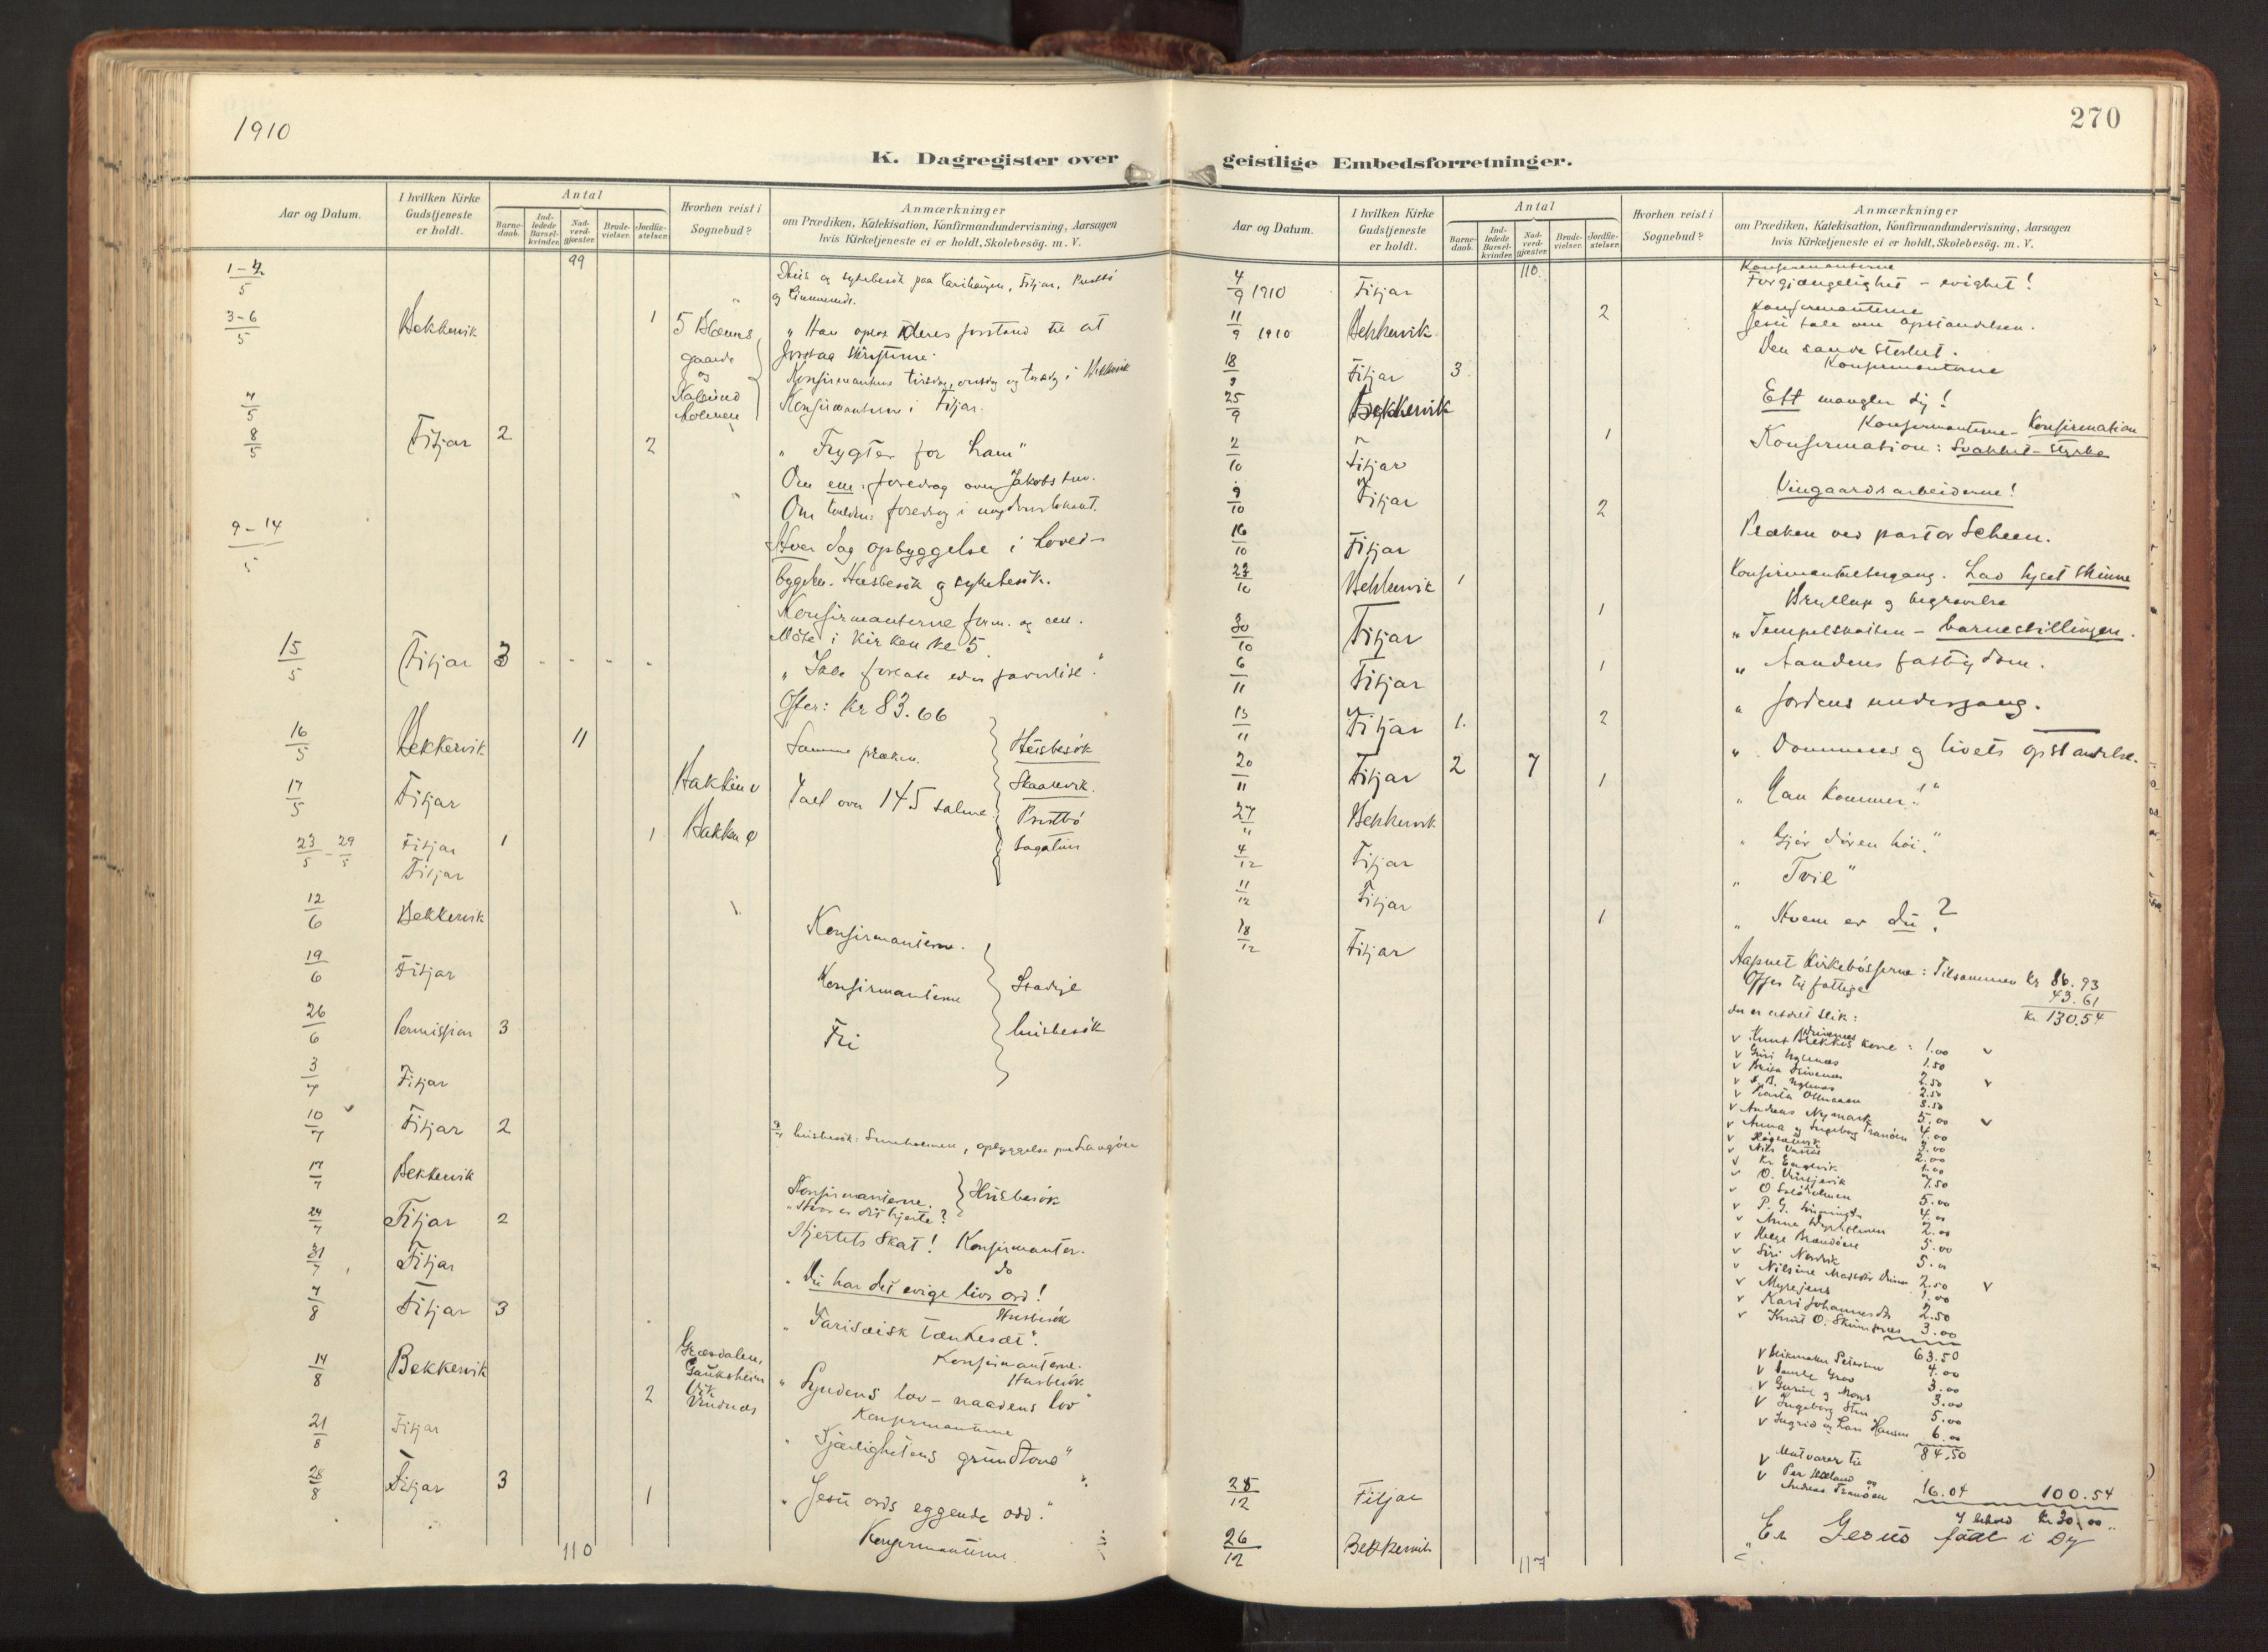 1910
K. Dagregister over
Aar og Datum.
I hvilken Kirke Gudstjeneste er holdt.
Antal
Barnedaab.
Indledede Barselkvinder.
Nadverdgjæster.
Brudevielser.
Jordfæstelser.
Hvorhen reist i Sognebud?
Anmærkninger
om Prædiken, Katekisation, Konfirmandundervisning, Aarsagen
hvis Kirketjeneste ei er holdt, Skolebesøg. m. V.
99
1-2/5 Hus og sykebesök paa Fitjar,
og
3-6/5 Bekkervik 1 5 " Han oplot deres forstand til at
gaarde forstaa skrifterne.
og Konfirmanterne tirsdag, onsdag og torsdag i Bekkervik
7/5 holmen Konfirmanterne i Fitjar.
8/5 Fitjar 2 2 " Frygter for ham"
Om em. foredrag over Jakobs brev.
Om kvelden: foredrag i ungdomslokalet.
9-14/5 Hver dag opbyggelse i hoved-
bygden. Husbesök og sykebesök.
Konfirmanterne form. og em.
Möte i Kirken kl 5.
15/5 Fitjar 3 " Ikke forlate eder faderlöse."
Ofter: Kr 83.66
16/5 Bekkervik 11 Samme præken. Husbesök
17/5 Fitjar Hakken Tael over 145 salme. Skaarevik.
Prestbö
23/5 - 29/5 Fitjar 1 1 Hakken Sagatun
Fitjar
12/6 Bekkervik Konfirmanterne.
19/6 Fitjar Konfirmanterne Stadige
26/6 Permission 3 Fri husbesök
3/7 Fitjar
10/7 Fitjar 2 husbesök: , opbyggelse paa Langöen
17/7 Bekkervik Konfirmanterne. Husbesök
"Hvor er dit hjerte?
24/7 Fitjar 2 Hjertets Skat! Konfirmanter.
do
31/7 Fitjar " Du har det evige livs ord!
Husbesök
7/8 Fitjar 3 " Farisæisk tænkesæt".
Konfirmanterne.
Husbesök
14/8 Bekkervik 2 Græsdalen, Gauksheim Vik Vindnæs " Syndens lov - naadens lov"
Konfirmanterne
21/8 Fitjar " Kjærlighetens grundtone"
28/8 Fitjar 3 1 " Jesu ords eggende odd."
Konfirmanterne.
110
270
geistlige Embedsforretninger.
Aar og Datum.
I hvilken Kirke Gudstjeneste er holdt.
Antal
Barnedaab.
Indledede Barselkvinder.
Nadverdgjæster.
Brudevielser.
Jordfæstelser.
Hvorhen reist i Sognebud?
Anmærkninger
om Prædiken, Katekisation, Konfirmandundervisning, Aarsagen
hvis Kirketjeneste ei er holdt, Skolebesøg. m. V.
110
Konfirmanterne
4/9 1910 Fitjar Forgjængelighet - evighet!
Konfirmanterne
11/9 1910 Bekkervik 2 Jesu tale om opstandelsen.
18/9 Fitjar 3 Den sande storhet.
Konfirmanterne
25/9 Bekkervik Ett mangler dig!
Konfirmanterne - Konfirmation
2/10 Fitjar 1 Konfirmation: Svakhet - styrke
9/10 Fitjar 2 Vingaardsarbeiderne!
16/10 Fitjar Præken ved pastor Scheen.
23/10 Bekkervik 1 Konfirmantaltergang. Lad lyset skinne
Bryllup og begravelse
30/10 Fitjar 1 " Tempelskatten - barnestillingen.
6/11 Fitjar 1 " Aandens fattigdom.
13/11 Fitjar 1. 2 " Jordens undergang.
20/11 Fitjar 2 7 1 " Dommens og livets opstandelse.
27/11 Bekkervik " Han kommer!"
4/12 Fitjar " Gjör dören höi."
11/12 Fitjar " Tvil"
18/12 Fitjar 1 " Hvem er du?
Aapnet Kirkebösserne: Tilsammen Kr 86.93
Offer til fattige 43.61
der er utdelt slik: Kr. 130.54
v Knut kone: 1.00 v
v Guri 1.50
v Brita 2.50 v
v 2.50
v 3.50
v Andreas Nymark 5.00 v
v Anna og Ingeborg Tranöen 4.00
v 3.00
v Nils 2.00
v Kr. Engevik 1.00
v O. 7.50
v O. 5.00
v P. G. 4.00
v Anna 2.00
v Helge Brandöen 5.00
v Siri Nordvik 5.00
v Nilsine 2.50 v
v Myrejens 1.00
v Kari Johannesdtr 2.50
v Knut O. 3.00
63.50
v Petersen 4.00
v Grov 3.00
v og Mons 3.00
v Ingeborg 5.00
v Ingrid og Lars Hansen 6.00
84.50
v Matvarer til
v Per og
Andreas Tranöen 16.04 100.54
I behold Kr 30.00
25/12 Fitjar
26/12 Bekkervik " Er Jesus födt i Dig
117